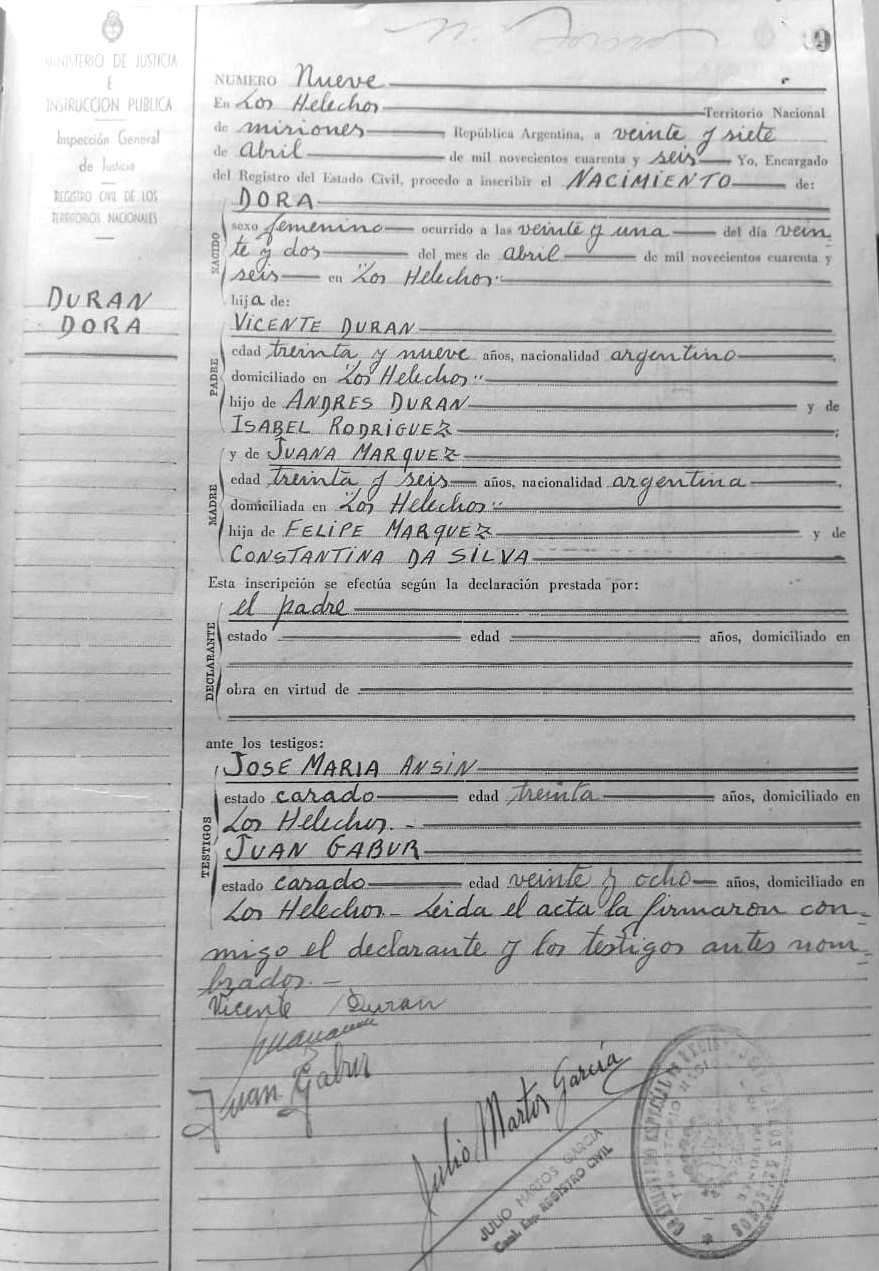 9
MINISTERIO DE JUSTICIA
E
INSTRUCCION PUBLICA
Inspección General
de Justicia
REGISTRO CIVIL DE LOS
TERRITORIOS NACIONALES
DURAN
DORA
NUMERO Nueve
En Los Helechos Territorio Nacional
de misiones República Argentina, a veinte y siete
de abril de mil novecientos cuarenta y seis Yo, Encargado
del Registro del Estado Civil, procedo a inscribir el NACIMIENTO de:
DORA
NACIDO
sexo femenino ocurrido a las veinte y una del día vein
te y dos del mes de abril de mil novecientos cuarenta y
seis en "Los Helechos"
hija de:
VICENTE DURAN
PADRE
edad treinta y nueve años, nacionalidad argentino,
domiciliado en "Los Helechos"
hijo de ANDRES DURAN y de
ISABEL RODRIGUEZ;
y de JUANA MARQUEZ
MADRE
edad treinta y seis años, nacionalidad argentina,
domiciliada en "Los Helechos"
hija de FELIPE MARQUEZ y de
CONSTANTINA DA SILVA
Esta inscripción se efectúa según la declaración prestada por:
DECLARANTE
el padre
estado edad años, domiciliado en
obra en virtud de
ante los testigos:
TESTIGOS
JOSE MARIA ANSIN
estado casado edad treinta años, domiciliado en
Los Helechos.-
JUAN GABUR
estado casado edad veinte y ocho años, domiciliado en
Los Helechos - Leida el acta la firmaron con=
migo el declarante y los testigos antes nom=
brados.-
Vicente Duran
Juan Gabur
Julio Martos García
JULIO MARTOS GARCIA
REGISTRO CIVIL